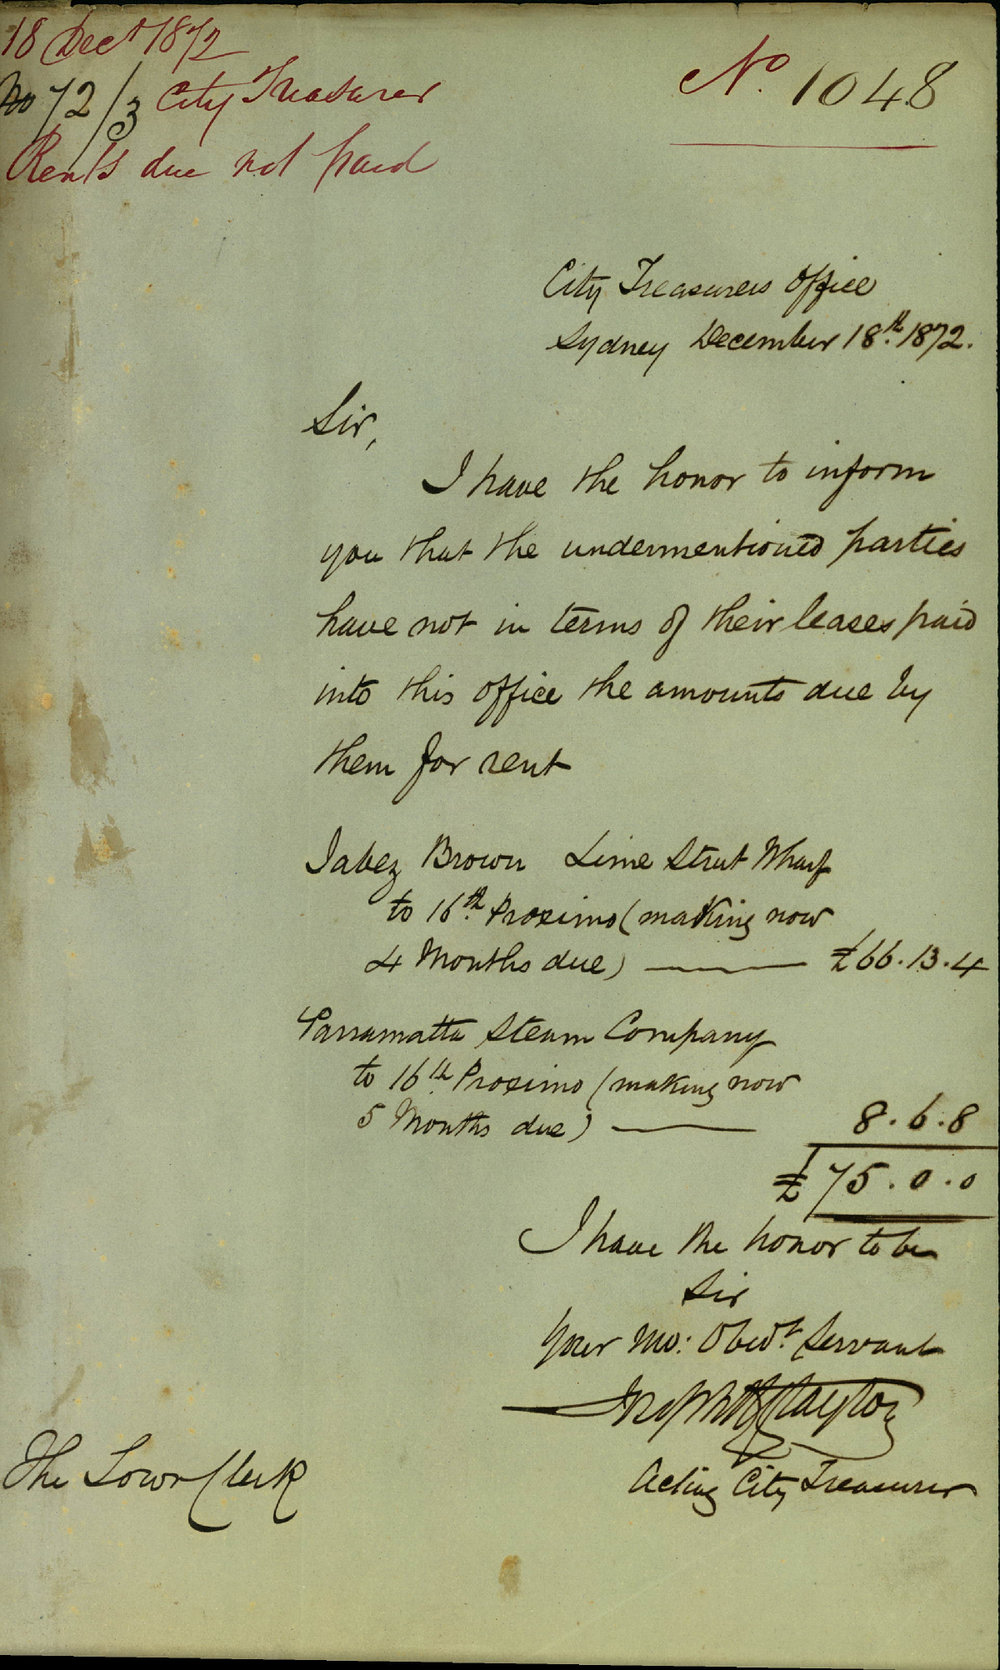 18 Dec^r 1872
No 72/3 City Treasurer
Rents due not paid
No. 1048
City Treasurers Office
Sydney December 18.th 1872.
Sir,
I have the honor to inform
you that the undermentioned parties
have not in terms of their leases paid
into this office the amounts due by
them for rent
Jabez Brown Lime Street Wharf
to 16.th Proximo (making now
4 Months due) — £66.13.4
Parramatta Steam Company
to 16th Proximo (making now
5 Months due) — 8.6.8
£75.0.0
I have the honor to be
Sir
Your Mo: Obed.t Servant
Acting City Treasurer
The Town Clerk